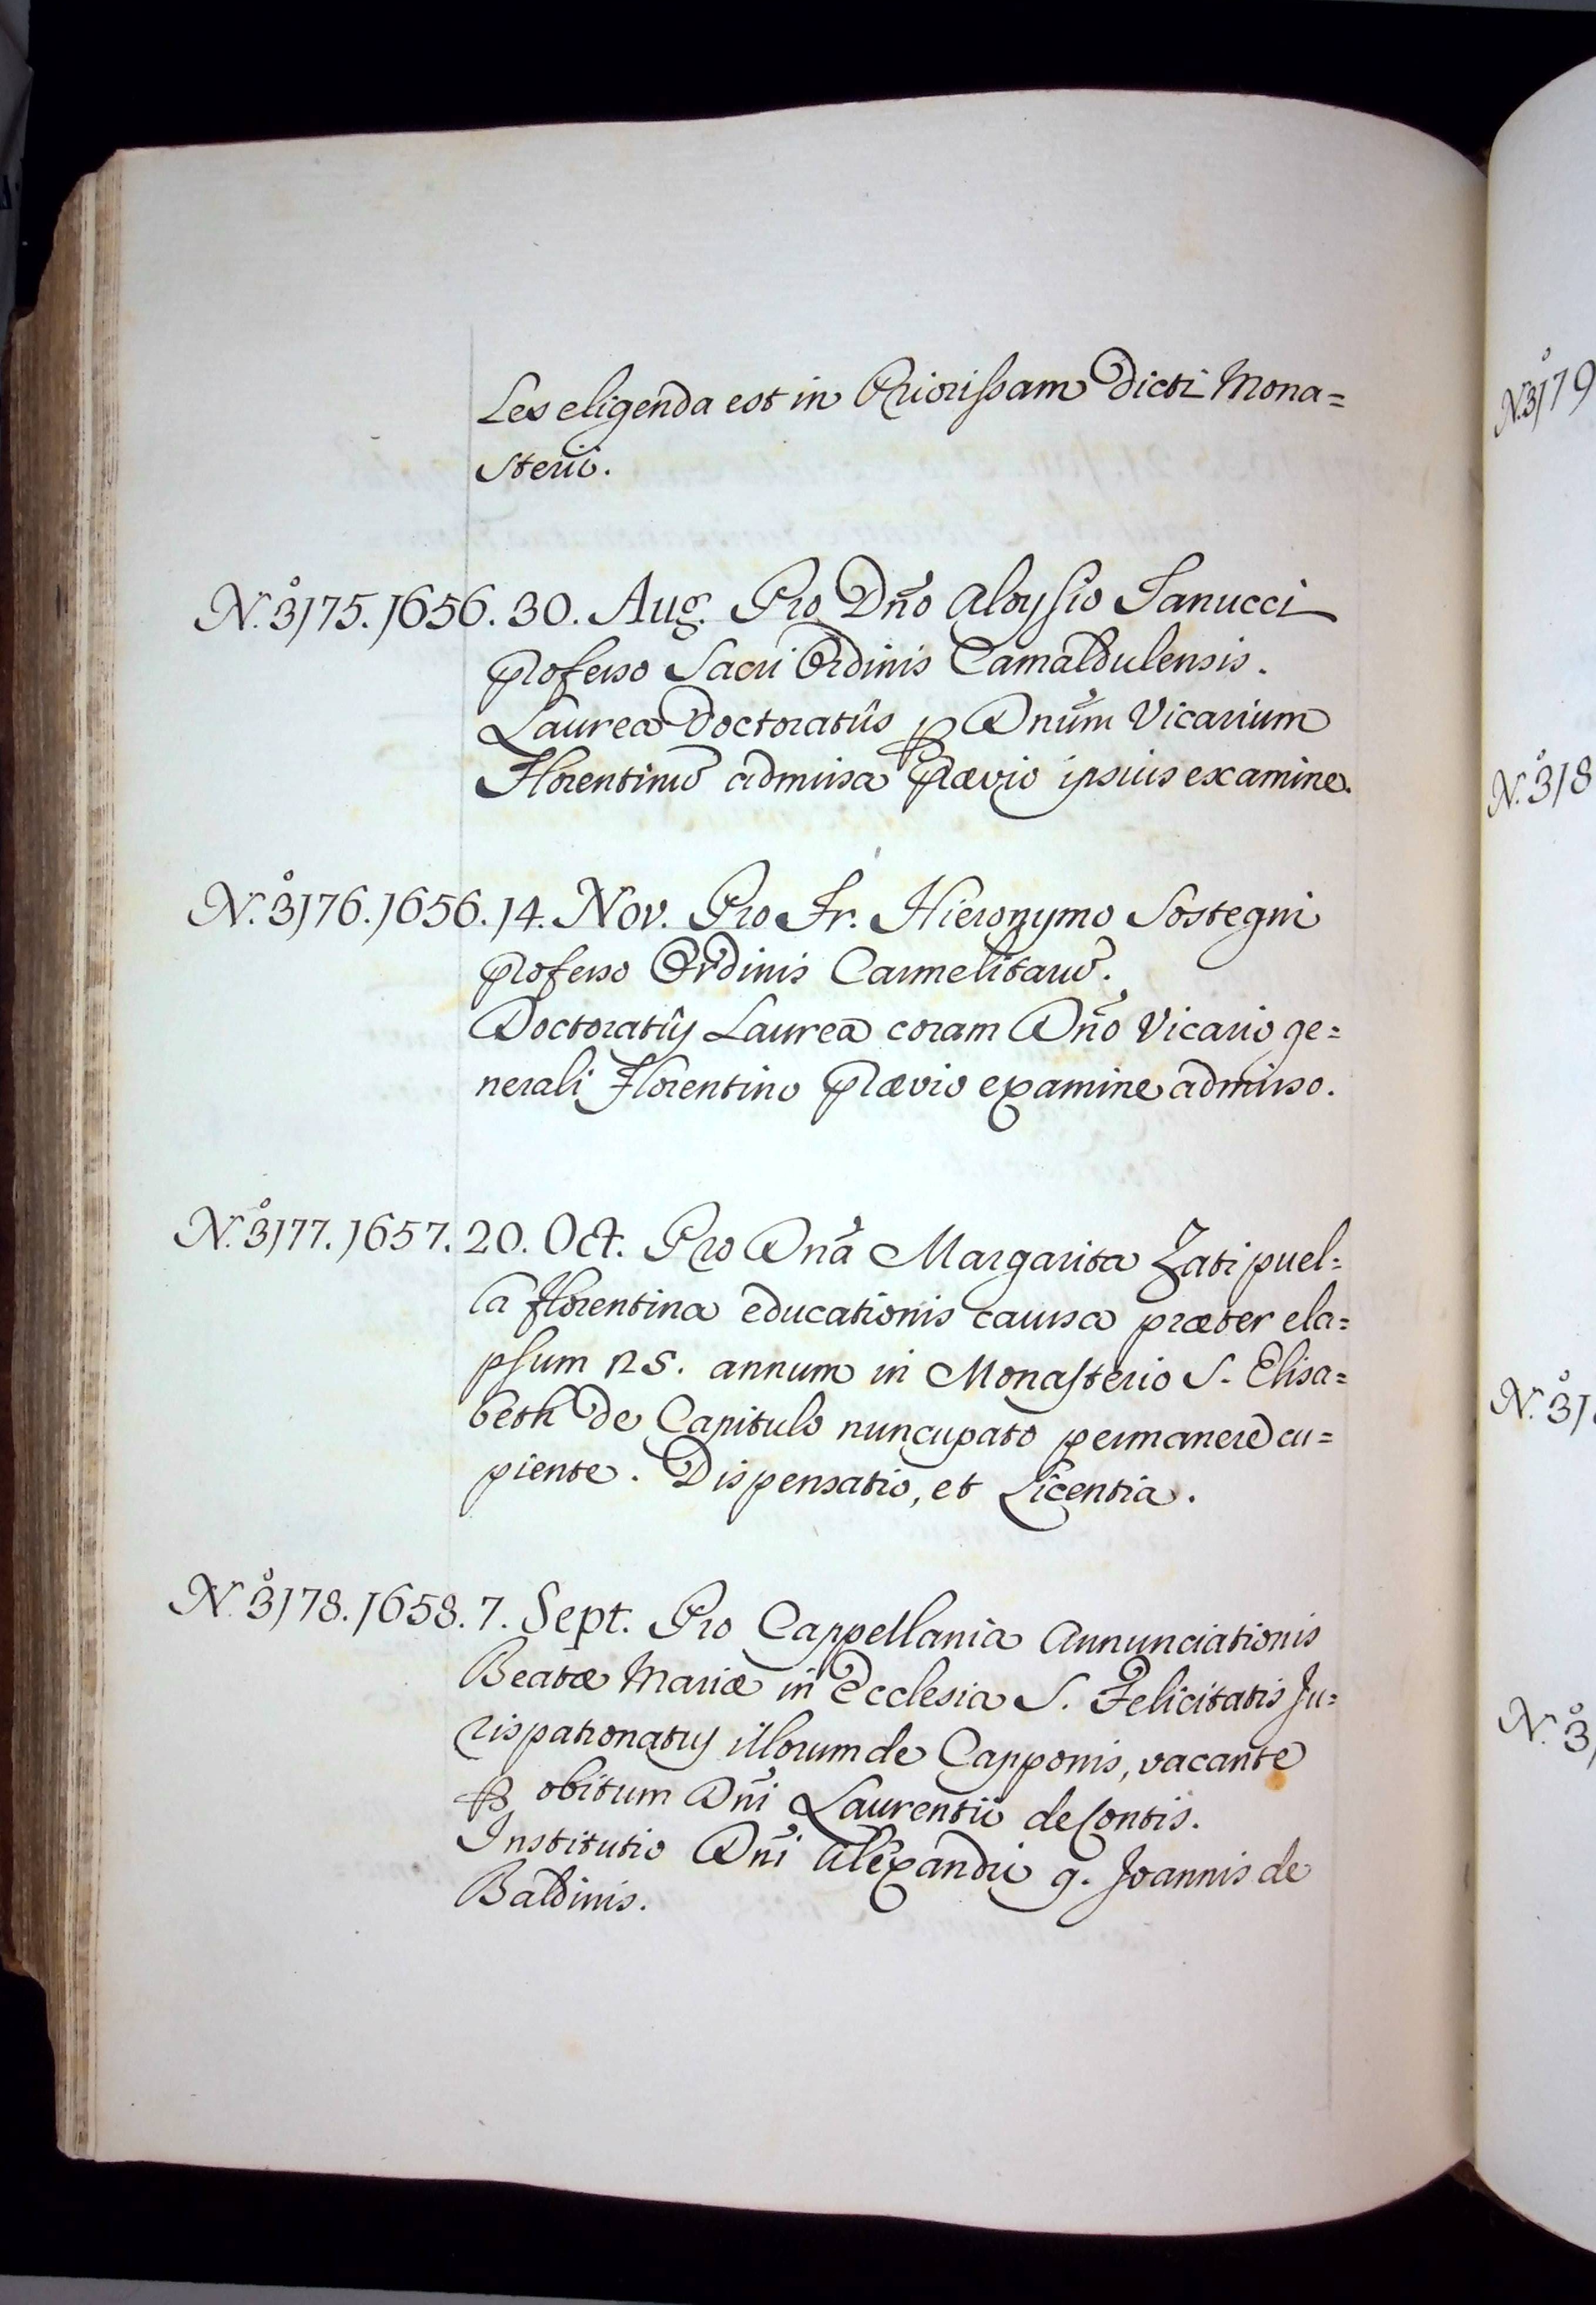 Les eligenda est in Priorissam Dicti Mona=
sterii.
N.º 3175. 1656. 30. Aug. Pro Dño Aloysio Ianucci
professo Sacri Ordinis Camaldulensis.
Laurea Doctoratûs ꝑ Dnũm Vicarium
Florentinũ admissa prævio ipsius examine.
N.º 3176. 1656. 14. Nov. Pro Fr. Hieronymo Sostegni
professo Ordinis Carmelitarũ.
Doctoratûs Laurea coram Dño Vicario ge=
nerali Florentino prævio examine admisso.
N.º 3177. 1657. 20. Oct. Pro Dñã Margarita Zati puel=
la florentina educationis caussa præter ela=
psum 25. annum in Monasterio S. Elisa=
beth de Capitulo nuncupato permanere cu=
piente. Dispensatio, et Licentia.
N.º 3178. 1658. 7. Sept. Pro Cappellania Annunciationis
Beatæ Mariæ in Ecclesia S. Felicitatis Ju=
rispatronatus illorum de Capponis, vacante
ꝑ obitum Dñi Laurentii de Contis.
Institutio Dñi Alexandri q. Joannis de
Baldinis.
N.º 3179
N.º 318
N.º 31
N.º 3